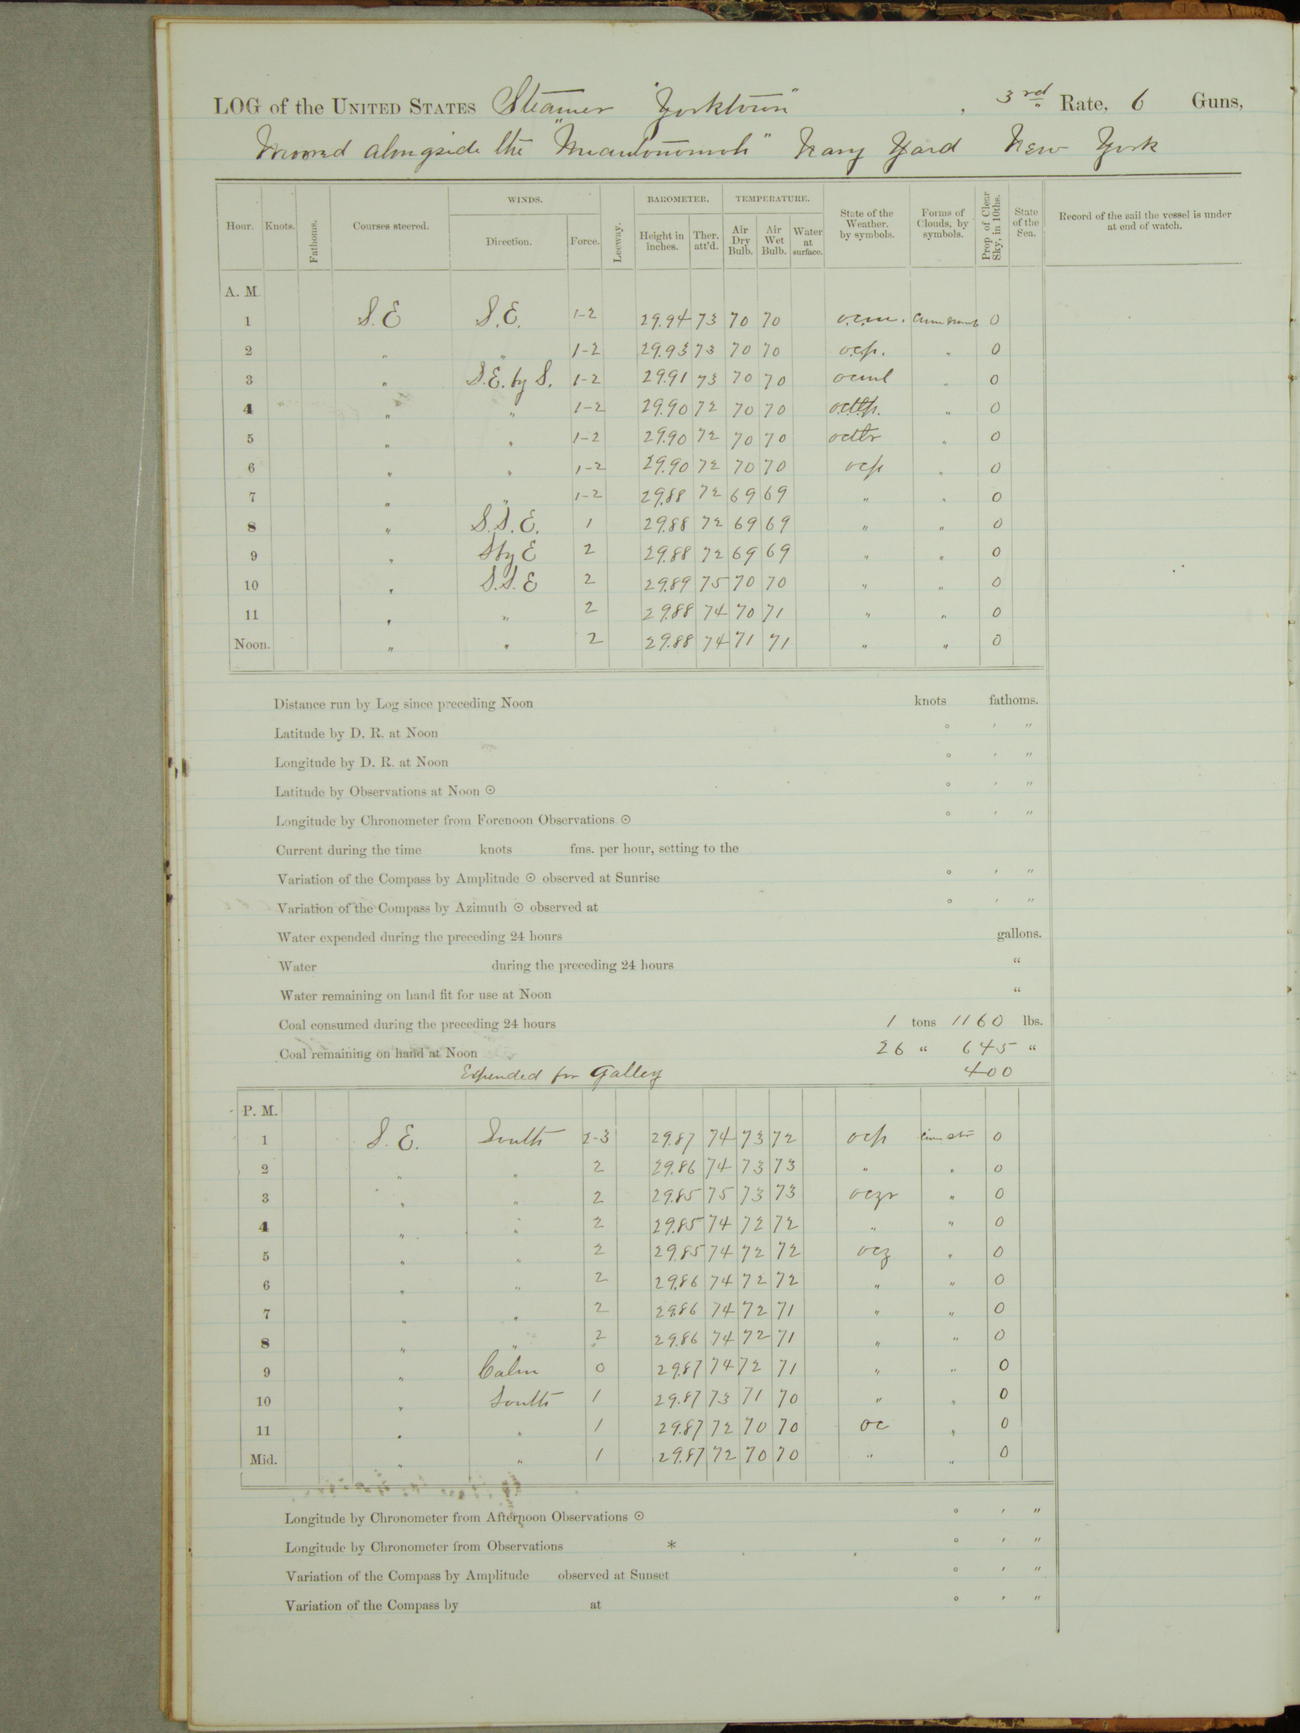 LOG of the UNITED STATES Steamer "Yorktown", 3rd Rate, 6 Guns,
Moored alongside the "Miantonomoh" Navy Yard New York
Hour. Knots. Fathoms. Courses steered. WINDS. Direction. Force. Leeway. BAROMETER. Height in inches. Ther. att'd. TEMPERATURE. Air Dry Bulb. Air Wet Bulb. Water at surface. State of the Weather. by symbols. Forms of Clouds, by symbols. Prop. of Clear Sky, in 10ths. State of the Sea. Record of the sail the vessel is under at end of watch.
A. M.
1 S.E S.E. 1-2 29.94 73 70 70 o.c.m. 0
2 " " 1-2 29.93 73 70 70 ocp. " 0
3 " S.E. by S. 1-2 29.91 73 70 70 " 0
4 " " 1-2 29.90 72 70 70 octlp. " 0
5 " " 1-2 29.90 72 70 70 octlr " 0
6 " " 1-2 29.90 72 70 70 ocp " 0
7 " " 1-2 29.88 72 69 69 " " 0
8 " S.S.E. 1 29.88 72 69 69 " " 0
9 " S by E 2 29.88 72 69 69 " " 0
10 " S.S.E 2 29.89 75 70 70 " " 0
11 " " 2 29.88 74 70 71 " " 0
Noon. " " 2 29.88 74 71 71 " " 0
Distance run by Log since preceding Noon knots fathoms.
Latitude by D. R. at Noon ° ′ ″
Longitude by D. R. at Noon ° ′ ″
Latitude by Observations at Noon ☉ ° ′ ″
Longitude by Chronometer from Forenoon Observations ☉ ° ′ ″
Current during the time knots fms. per hour, setting to the
Variation of the Compass by Amplitude ☉ observed at Sunrise ° ′ ″
Variation of the Compass by Azimuth ☉ observed at ° ′ ″
Water expended during the preceding 24 hours gallons.
Water during the preceding 24 hours "
Water remaining on hand fit for use at Noon "
Coal consumed during the preceding 24 hours 1 tons 1160 lbs.
Coal remaining on hand at Noon 26 " 645 "
Expended for Galley 400
P. M.
1 S.E. South 2-3 29.87 74 73 72 ocp cum str 0
2 " " 2 29.86 74 73 73 " " 0
3 " " 2 29.85 75 73 73 oczr " 0
4 " " 2 29.85 74 72 72 " " 0
5 " " 2 29.85 74 72 72 ocz " 0
6 " " 2 29.86 74 72 72 " " 0
7 " " 2 29.86 74 72 71 " " 0
8 " " 2 29.86 74 72 71 " " 0
9 " Calm 0 29.87 74 72 71 " " 0
10 " South 1 29.87 73 71 70 " " 0
11 " " 1 29.87 72 70 70 oc " 0
Mid. " " 1 29.87 72 70 70 " " 0
Longitude by Chronometer from Afternoon Observations ☉ ° ′ ″
Longitude by Chronometer from Observations * ° ′ ″
Variation of the Compass by Amplitude observed at Sunset ° ′ ″
Variation of the Compass by at ° ′ ″